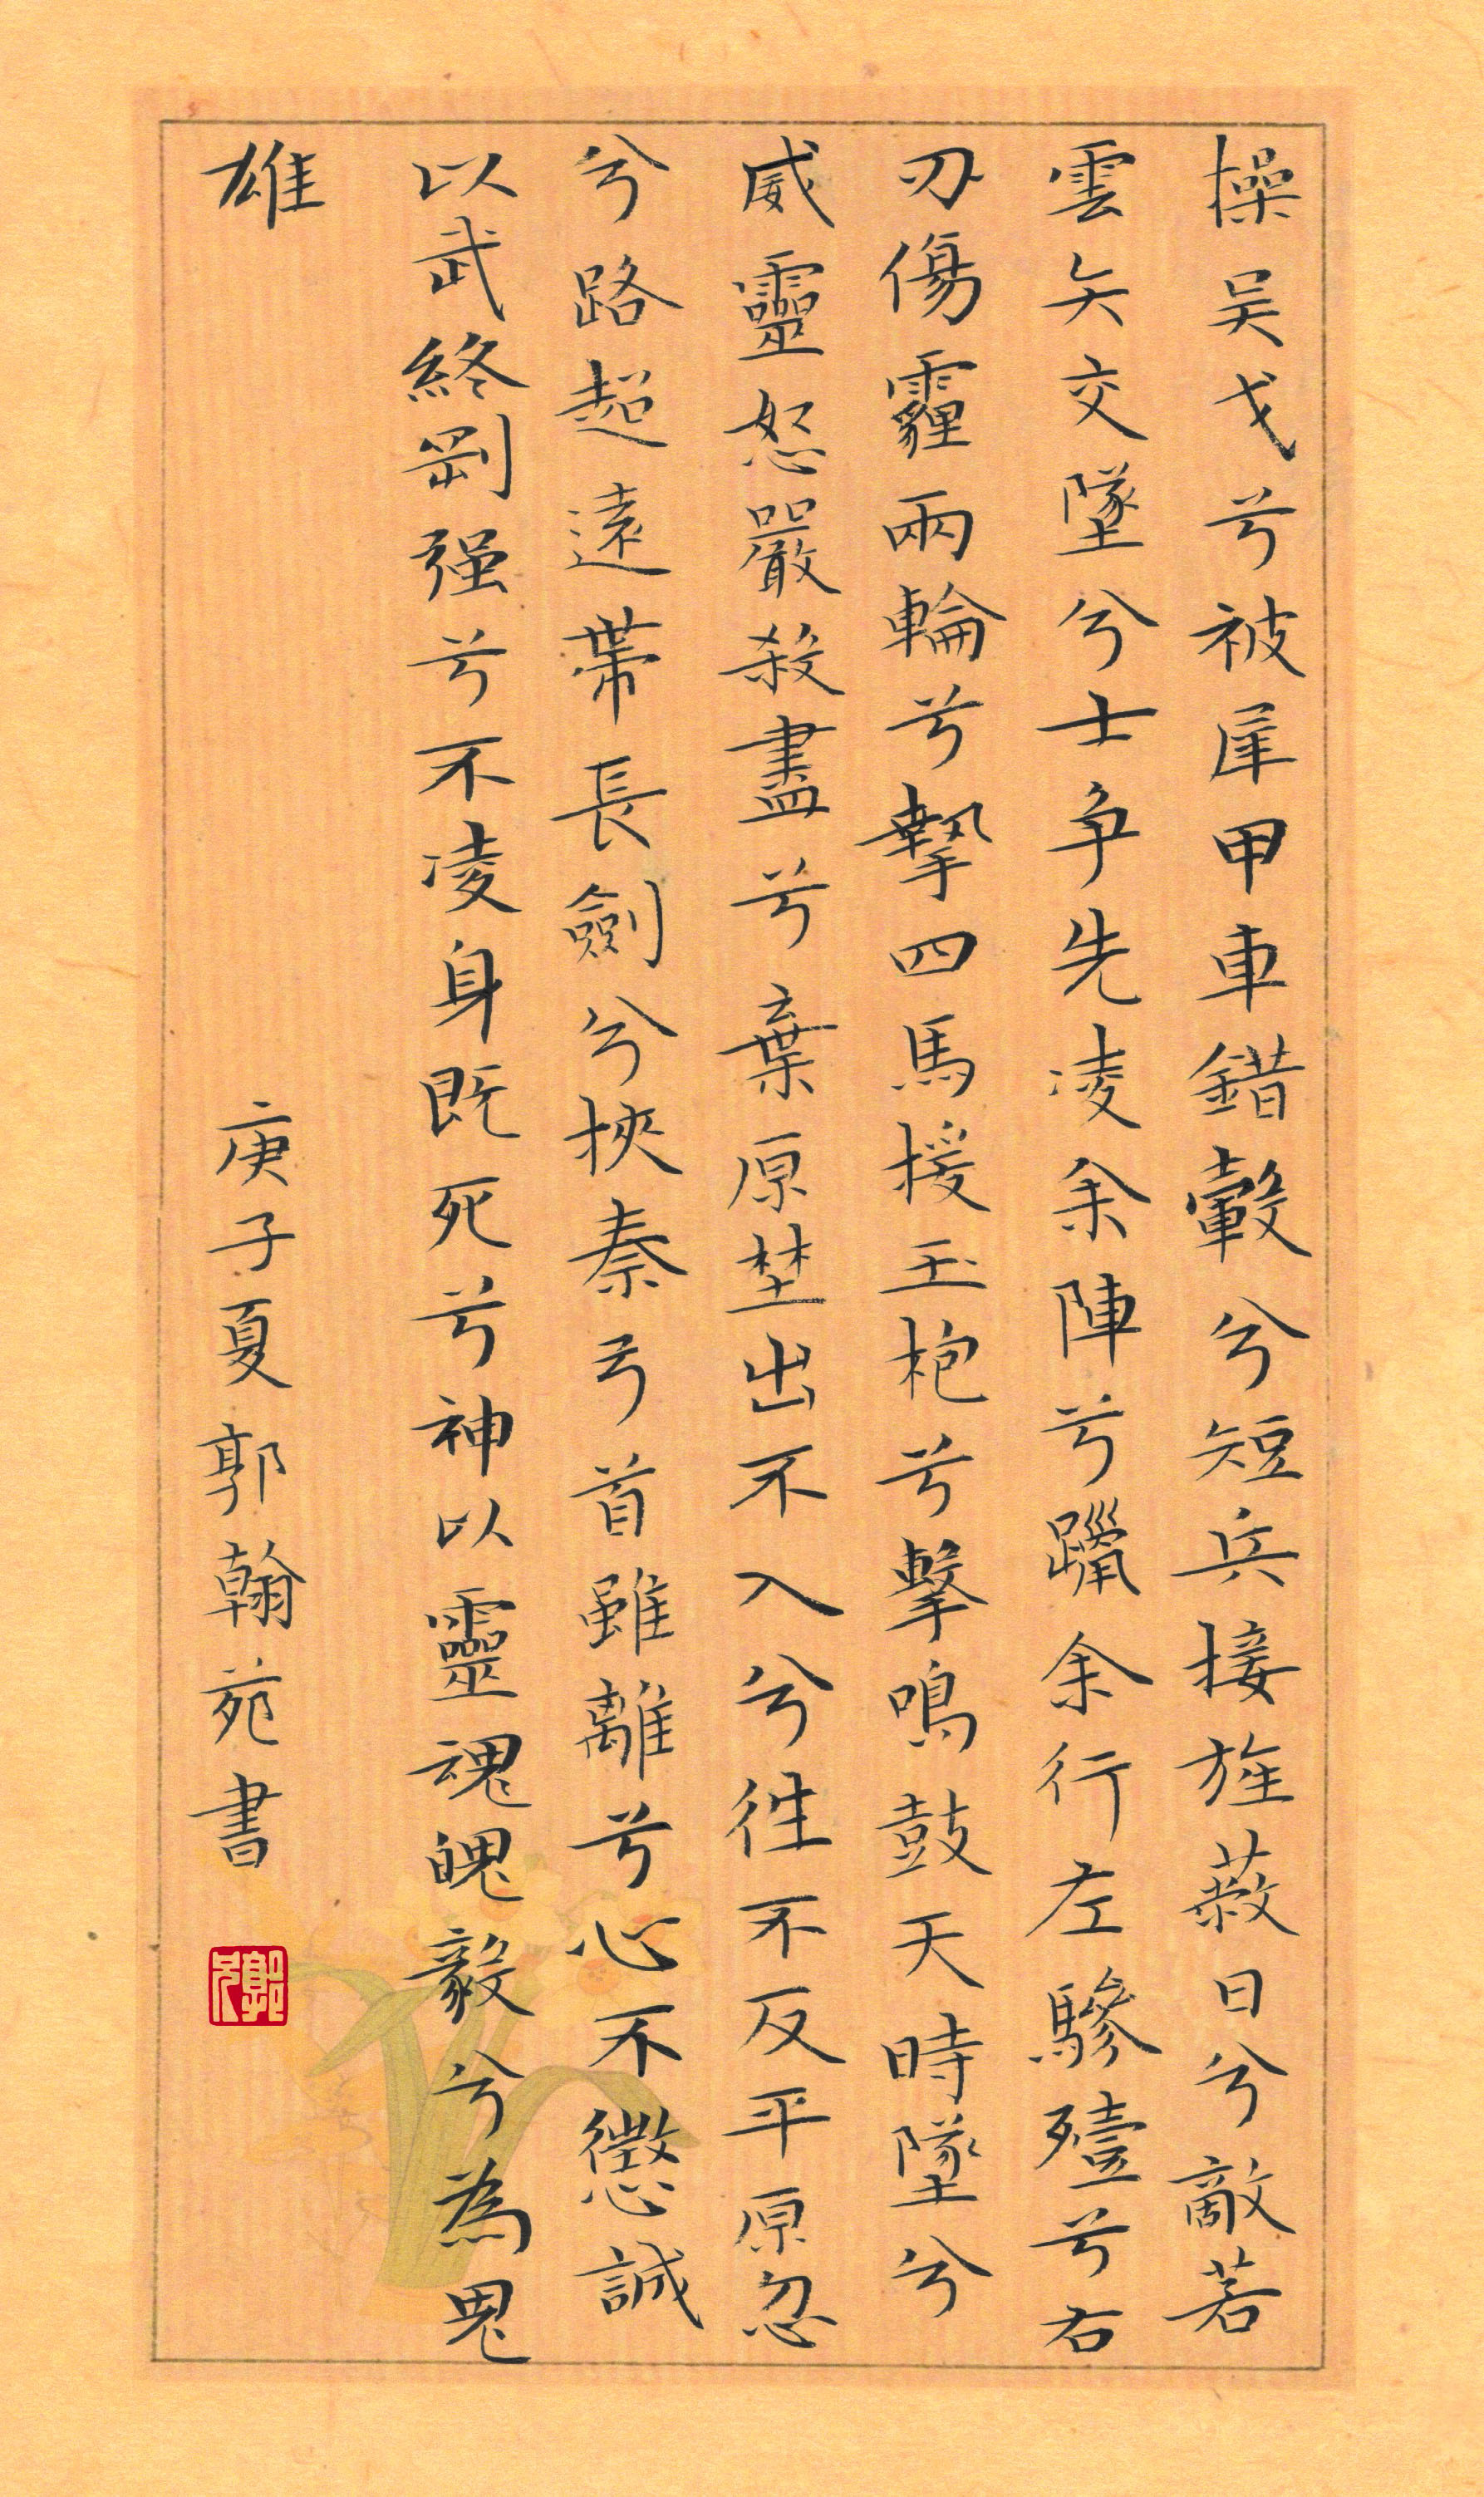 操吴戈兮被犀甲車錯轂兮短兵接旌蔽日兮敵若
雲矢交墜兮士争先凌余陣兮躐余行左驂殪兮右
刃傷霾兩輪兮摯四馬援玉枹兮擊鳴鼓天時墜兮
威靈怒嚴殺盡兮棄原埜出不入兮往不反平原忽
兮路超遠帶長劍兮挾秦弓首雖離兮心不懲誠
以武終剛强兮不凌身既死兮神以靈魂魄毅兮為鬼
雄
庚子夏郭翰苑書